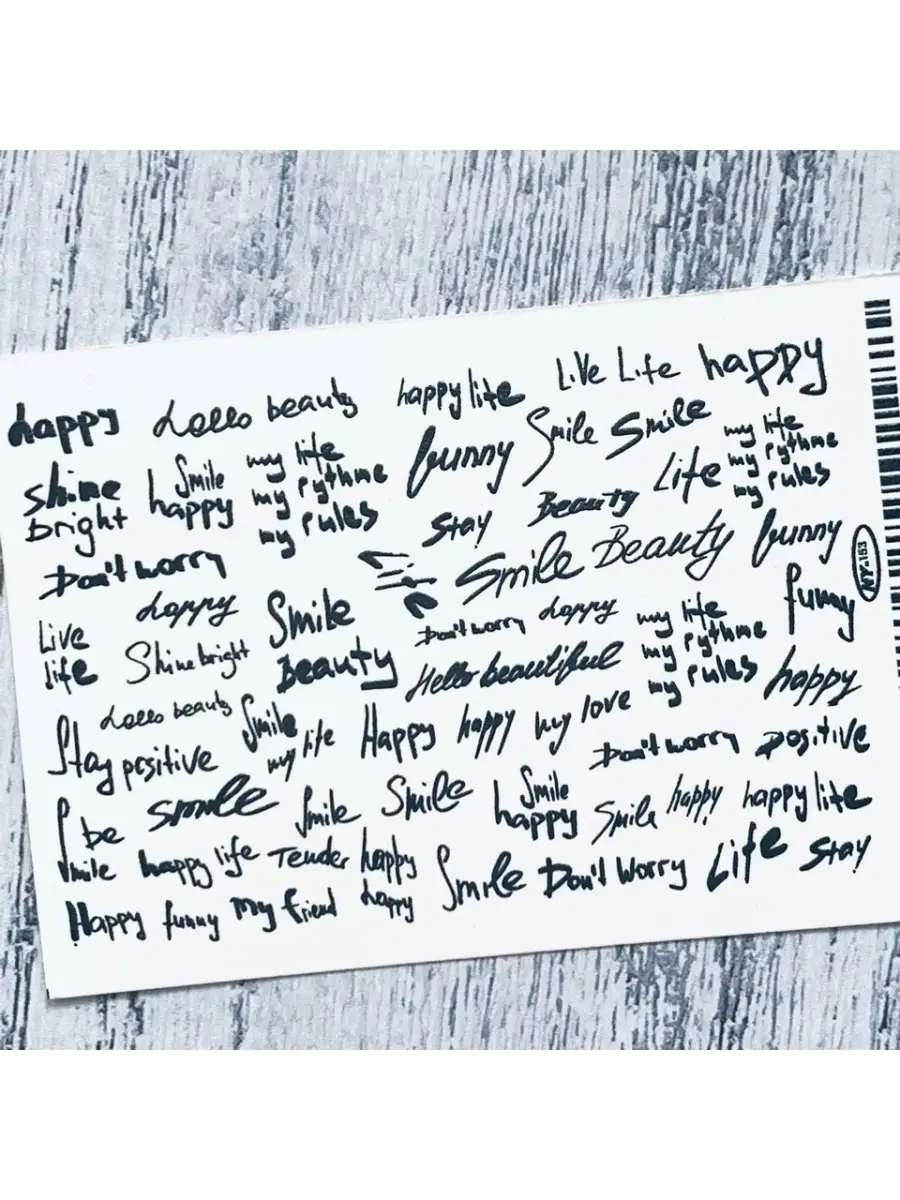 happy Lello beauty happy lite Live Life happy
shine Smile my life funny Smile Smile my life
bright happy my rythme Life my rythme
my rules Stay Beauty my rules
Don't worry Smile Beauty funny
NY-153
Live happy Smile Don't worry happy my life funny
life Shine bright Beauty Hello beautiful my rythme
my rules happy
Lello beauty Smile Happy happy my love
Stay positive my life Don't worry positive
be smile Smile Smile Smile Smile happy happy lite
happy
Smile happy life Tender happy Smile Don't Worry Life Stay
Happy funny My friend happy